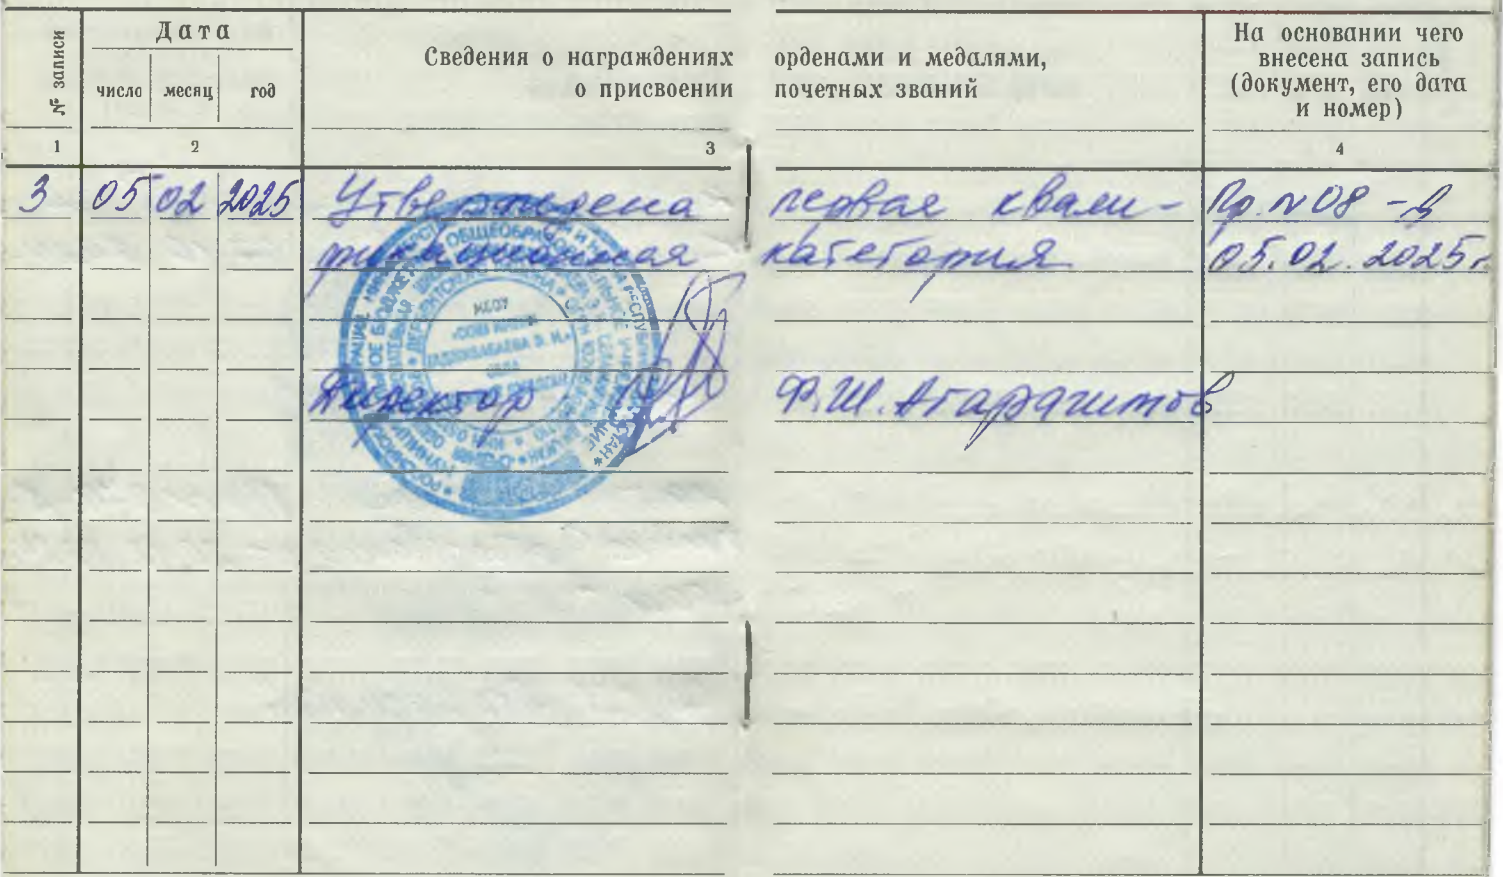 № записи
Дата
число месяц год
Сведения о награждениях орденами и медалями,
о присвоении почетных званий
На основании чего
внесена запись
(документ, его дата
и номер)
1 2 3 4
3 05 02 2025 Утверждена первая квали- Пр. №08 -
фикационная категория 05.02.2025г.
Директор Ф.Ш. Агарагимов
МБОУ